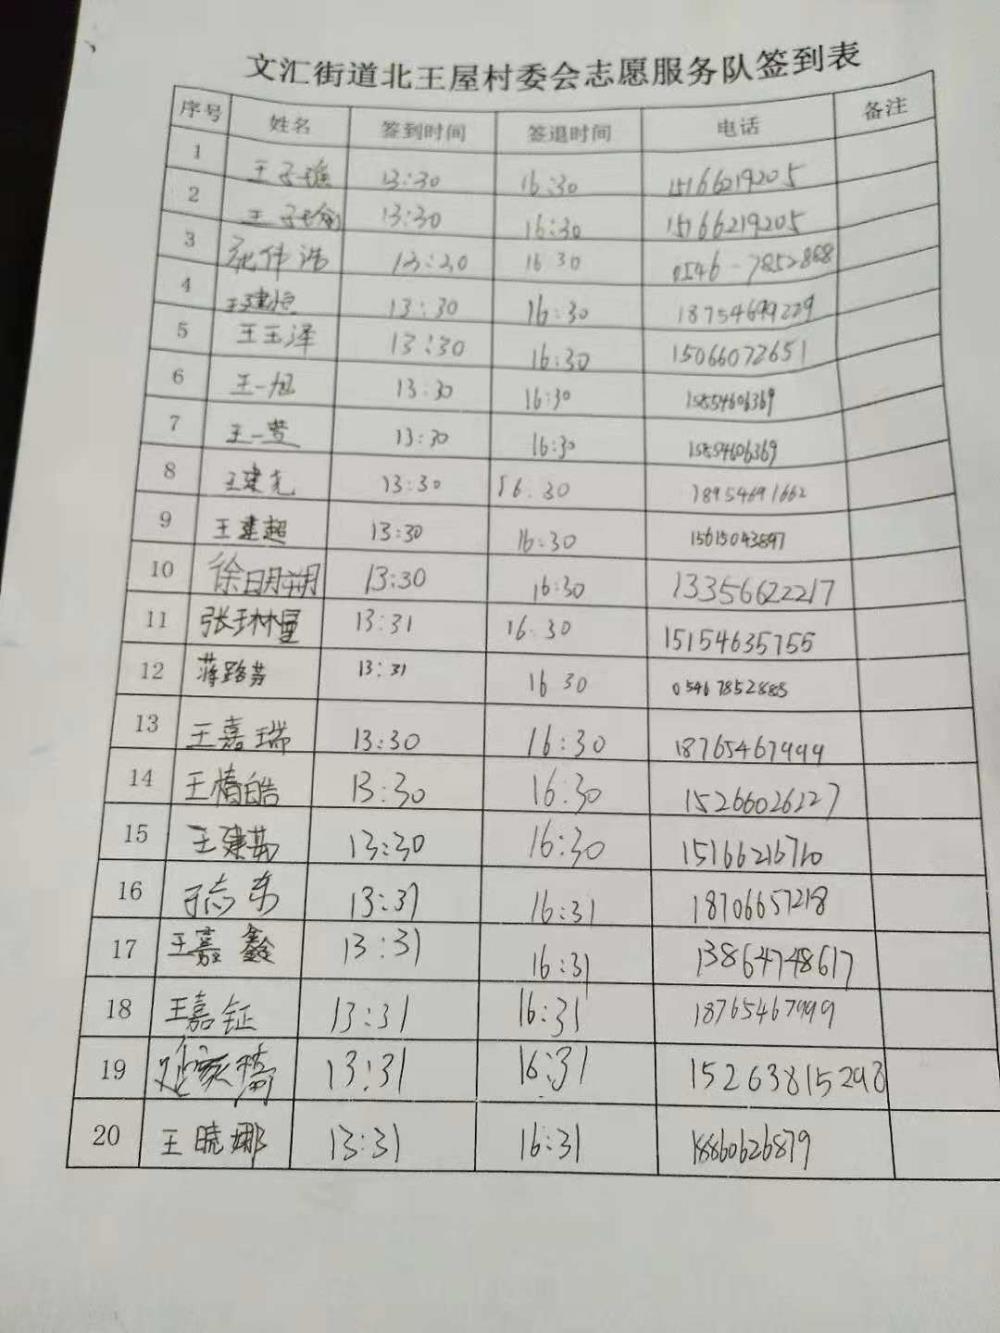 文汇街道北王屋村委会志愿服务队签到表
序号 姓名 签到时间 签退时间 电话 备注
1 王子瑶 13:30 16:30 15166219205
2 王子瑜 13:30 16:30 15166219205
3 张伟浩 13:30 16 30 0546-7852888
4 王建恒 13:30 16:30 18754699229
5 王玉泽 13:30 16:30 15066072651
6 王一旭 13:30 16:30 15854606369
7 王一 13:30 16:30 15854606369
8 王建光 13:30 16.30 18954691662
9 王建超 13:30 16:30 15615043897
10 徐明朔 13:30 16:30 13356622217
11 张琳量 13:31 16.30 15154635755
12 蒋路芳 13:31 16 30 0546 7852888
13 王嘉瑞 13:30 16:30 18765467999
14 王楕皓 13:30 16:30 15266026227
15 王建芬 13:30 16:30 15166216710
16 于志东 13:31 16:31 18706657218
17 王嘉鑫 13:31 16:31 13864748617
18 王嘉钲 13:31 16:31 18765467999
19 13:31 16:31 15263815298
20 王晓娜 13:31 16:31 18860626879